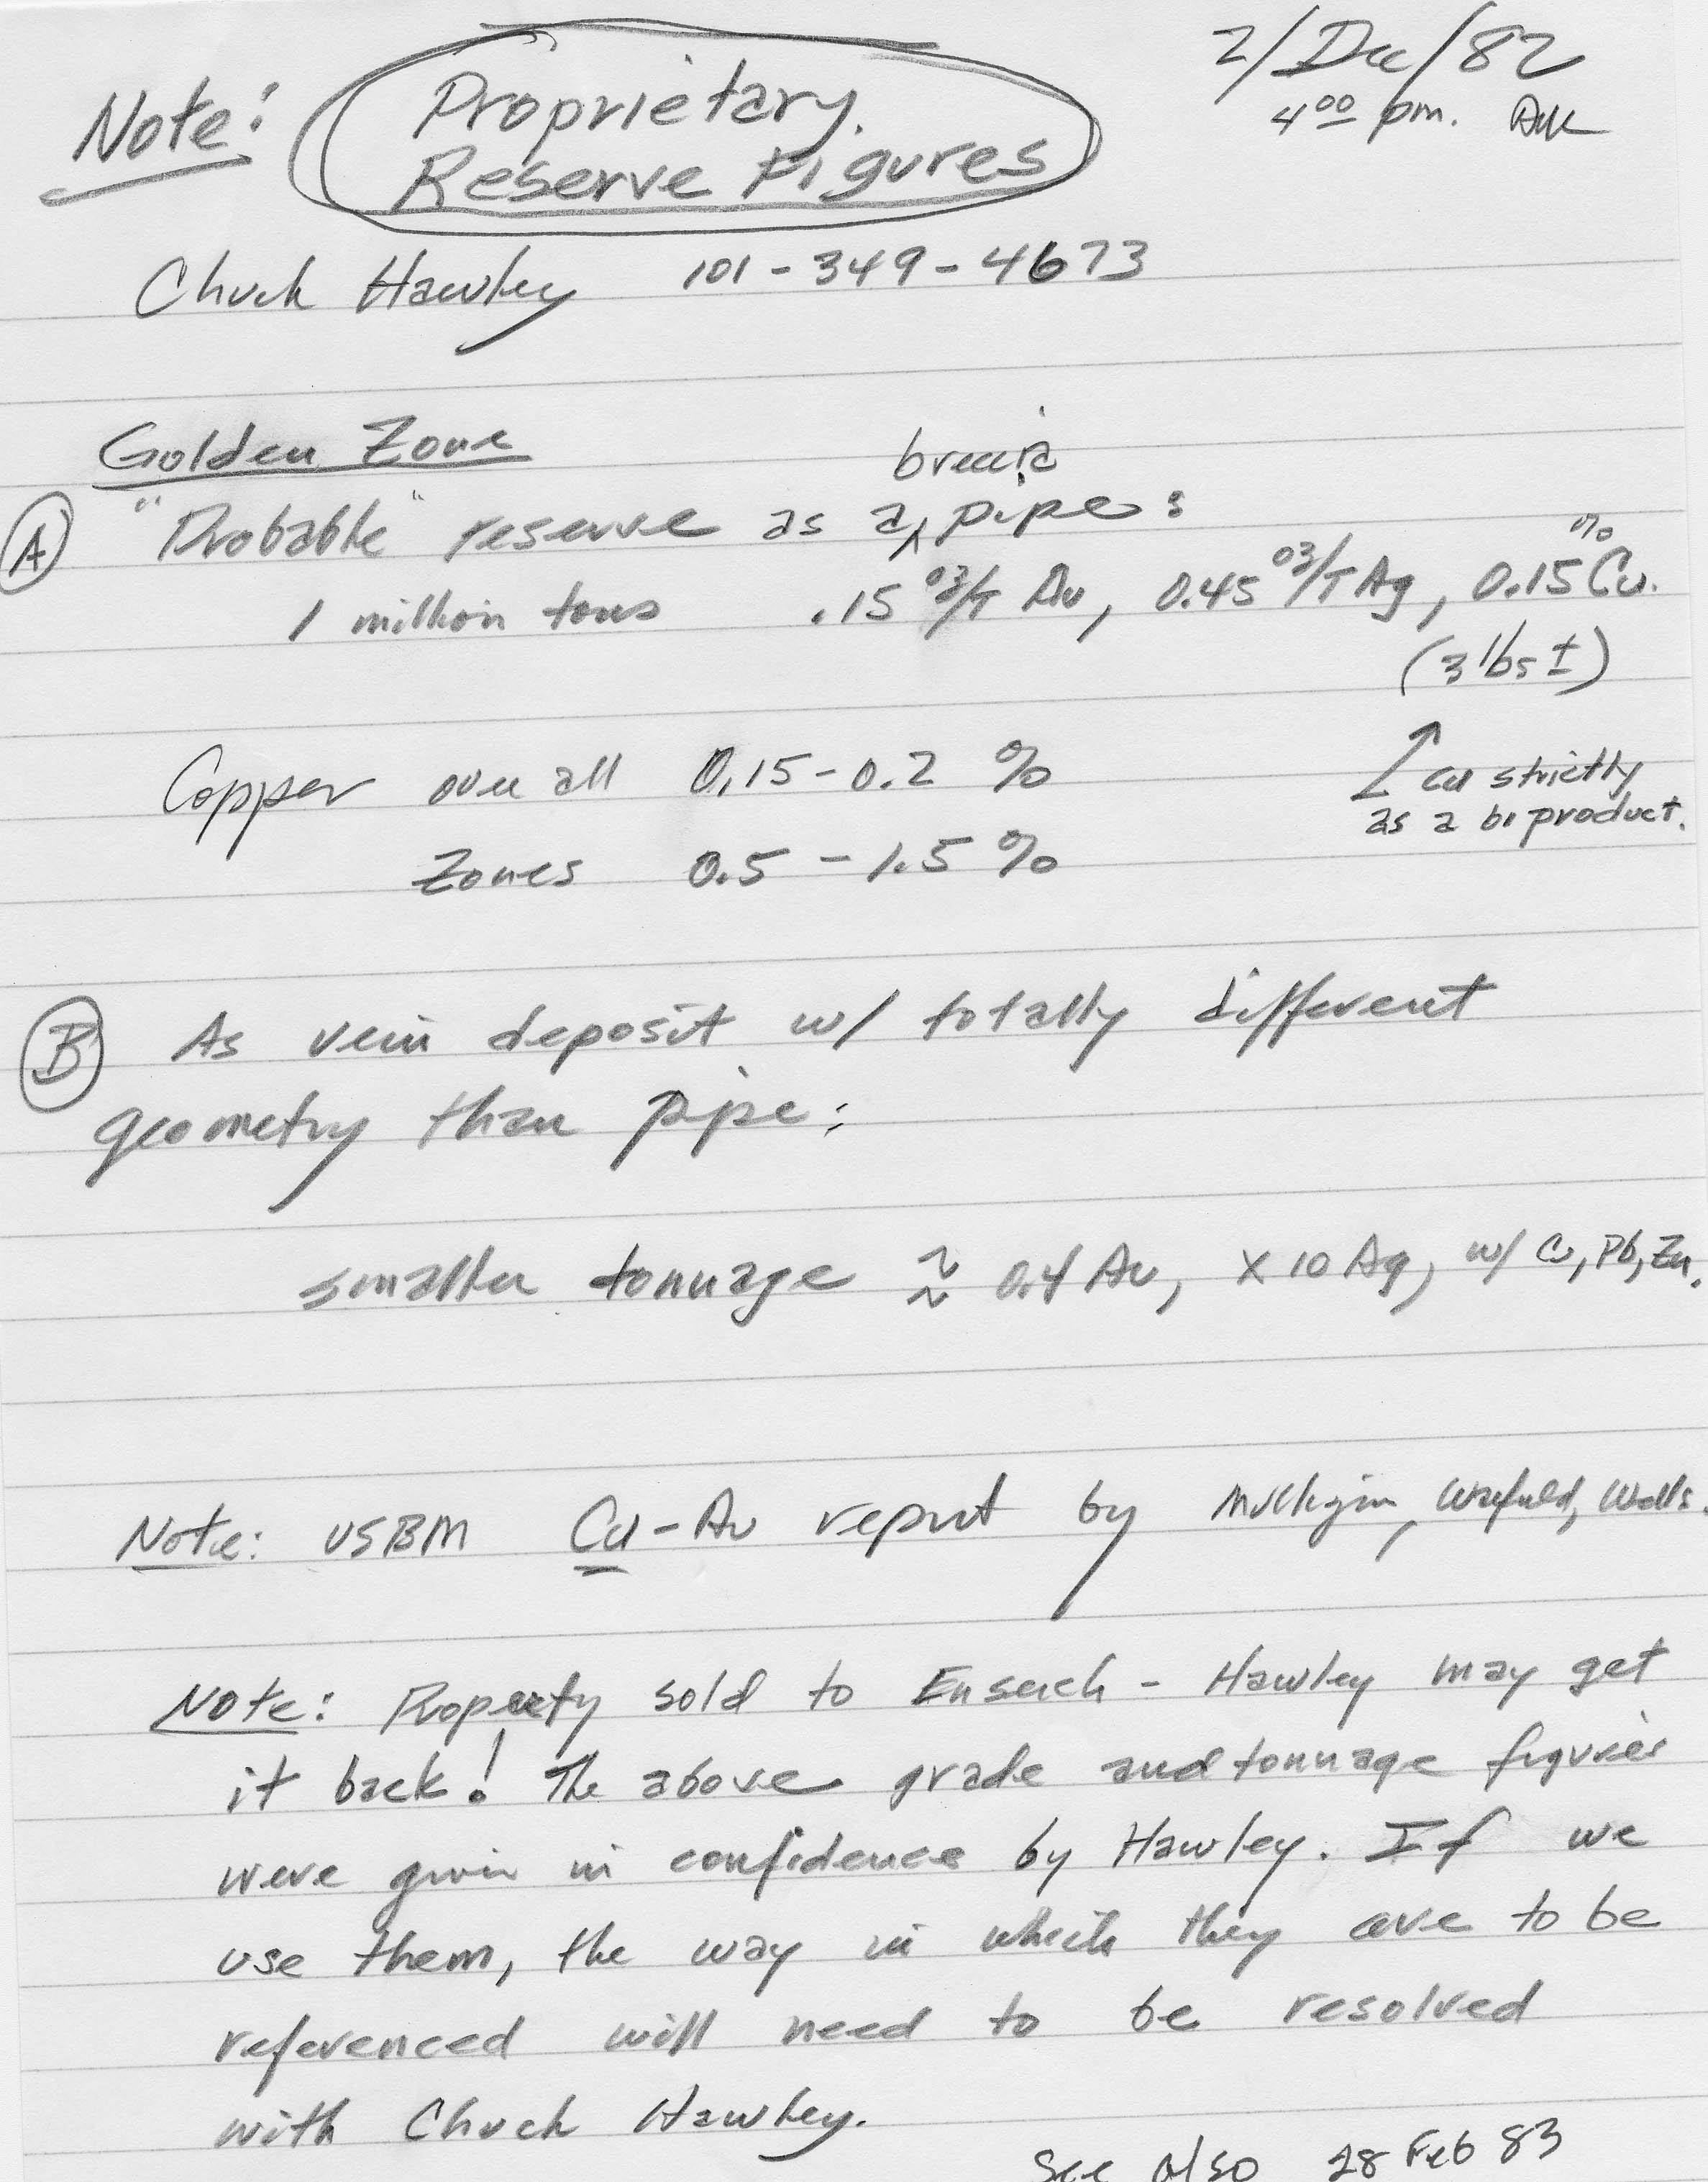 2/Dec/82
Note: Proprietary.
Reserve Figures
4⁰⁰ pm.
Chuck Hawley 101-349-4673
Golden Zone
breccia
Ⓐ "Probable" reserve as a ‸ pipe:
1 million tons .15 oz/T Au, 0.45 oz/T Ag, 0.15% Cu.
(3 lbs ±)
Copper over all 0.15-0.2 %
↑ Cu strictly
as a bi product.
Zones 0.5 - 1.5 %
Ⓑ As vein deposit w/ totally different
geometry than pipe:
smaller tonnage ≈ 0.4 Au, x 10 Ag, w/ Cu, Pb, Zn.
Note: USBM Cu-Au report by Mulligan, Warfield, Wells.
Note: Property sold to Enserch - Hawley may get
it back! The above grade and tonnage figures
were given in confidence by Hawley. If we
use them, the way in which they are to be
referenced will need to be resolved
with Chuck Hawley.
See also 28 Feb 83